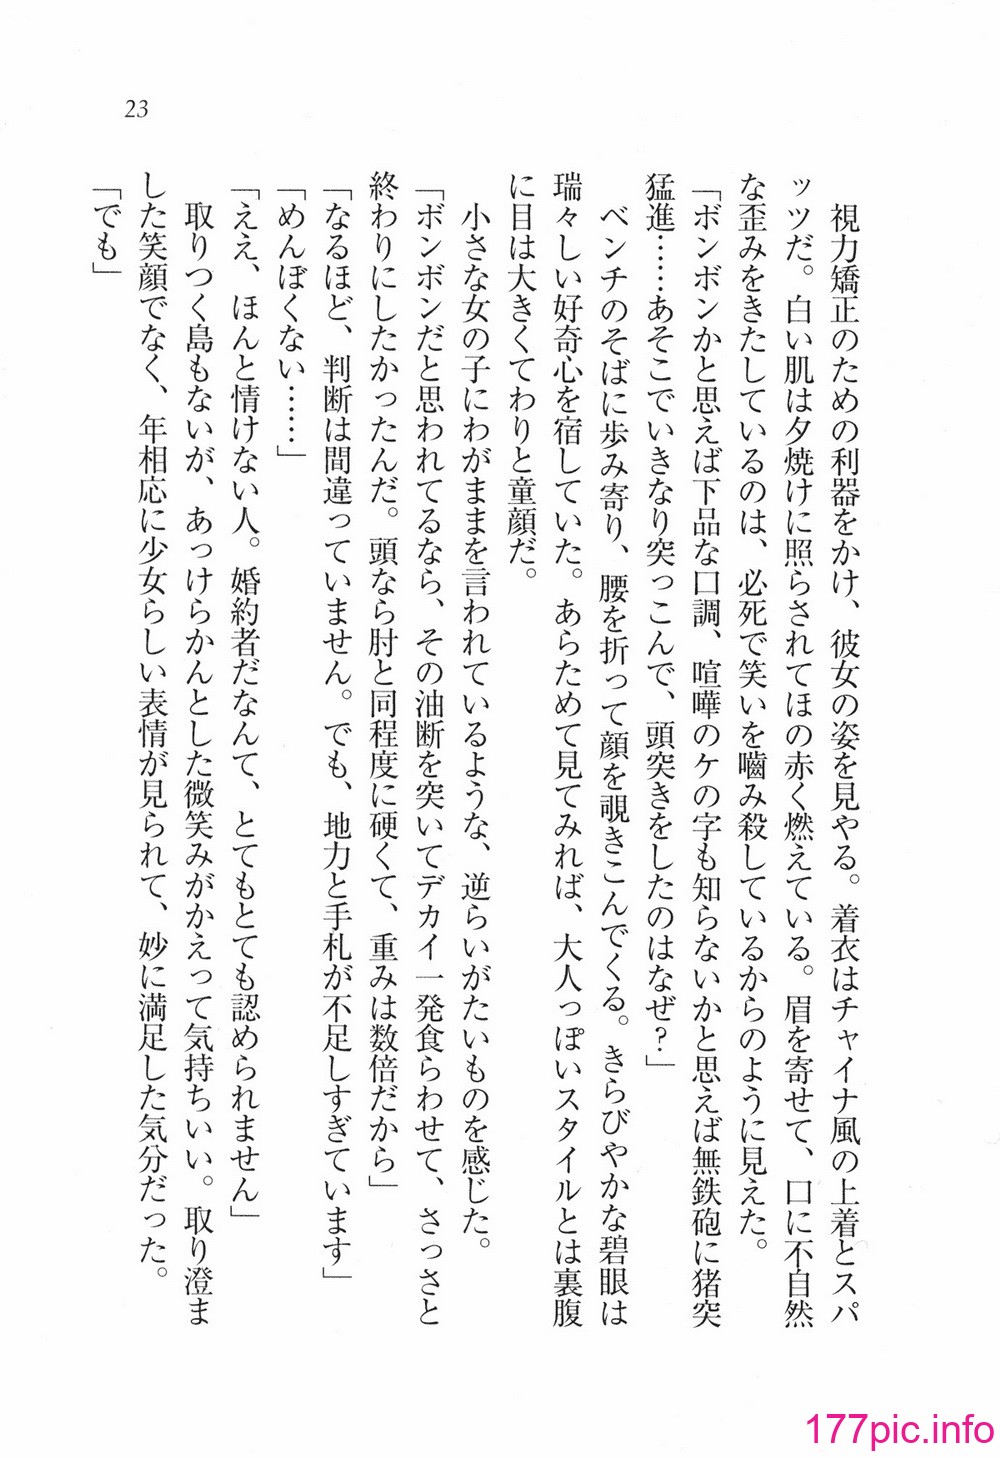 23
視力矯正のための利器をかけ、彼女の姿を見やる。着衣はチャイナ風の上着とスパ
ッツだ。白い肌は夕焼けに照らされてほの赤く燃えている。眉を寄せて、口に不自然
な歪みをきたしているのは、必死で笑いを嚙み殺しているからのように見えた。
「ボンボンかと思えば下品な口調、喧嘩のケの字も知らないかと思えば無鉄砲に猪突
猛進……あそこでいきなり突っこんで、頭突きをしたのはなぜ？」
ベンチのそばに歩み寄り、腰を折って顔を覗きこんでくる。きらびやかな碧眼は
瑞々しい好奇心を宿していた。あらためて見てみれば、大人っぽいスタイルとは裏腹
に目は大きくてわりと童顔だ。
小さな女の子にわがままを言われているような、逆らいがたいものを感じた。
「ボンボンだと思われてるなら、その油断を突いてデカイ一発食らわせて、さっさと
終わりにしたかったんだ。頭なら肘と同程度に硬くて、重みは数倍だから」
「なるほど、判断は間違っていません。でも、地力と手札が不足しすぎています」
「めんぼくない……」
「ええ、ほんと情けない人。婚約者だなんて、とてもとても認められません」
取りつく島もないが、あっけらかんとした微笑みがかえって気持ちいい。取り澄ま
した笑顔でなく、年相応に少女らしい表情が見られて、妙に満足した気分だった。
「でも」
177pic.info